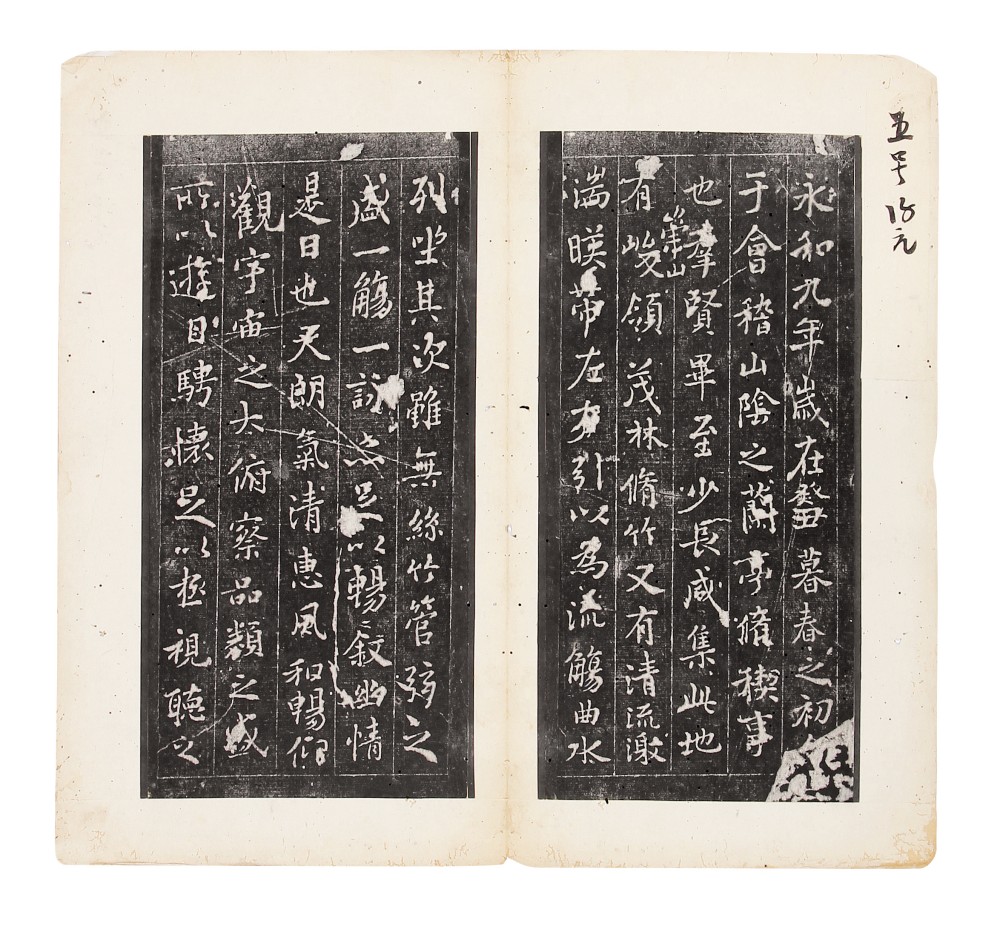 五号 元
永和九年歲在癸丑暮春之初
于會稽山陰之蘭亭脩稧事
也羣賢畢至少長咸集此地
有崇山峻領茂林脩竹又有清流激
湍暎帶左右引以為流觴曲水
列坐其次雖無絲竹管弦之
盛一觴一詠亦足以暢敘幽情
是日也天朗氣清惠風和暢仰
觀宇宙之大俯察品類之盛
所以遊目騁懷足以極視聽之